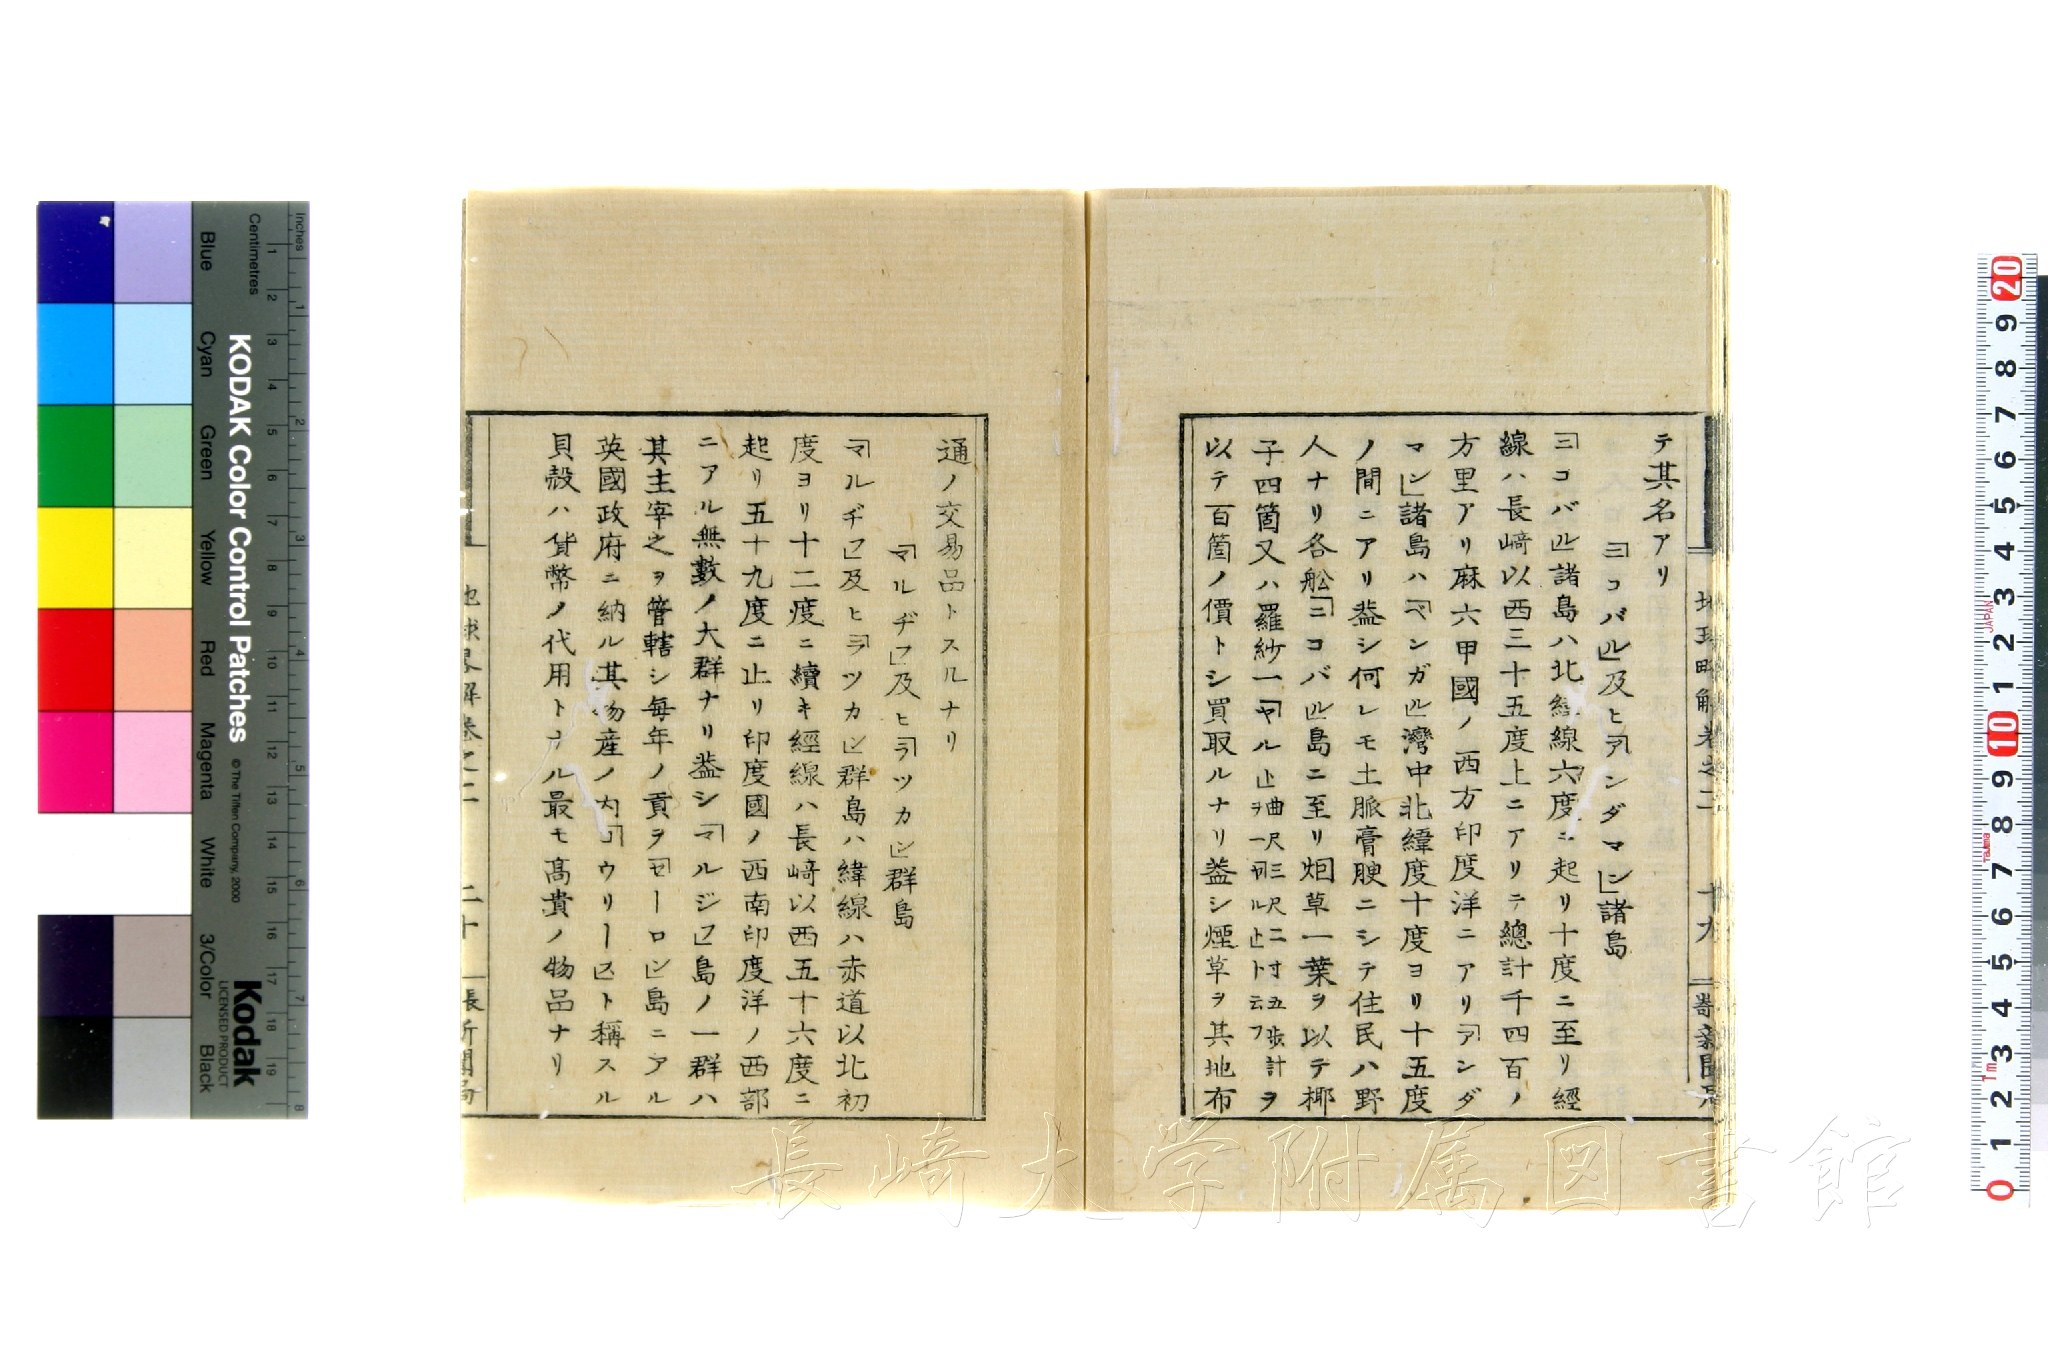 テ其名アリ
「ニコバル」及ヒ「アンダマン」諸島
「ニコバル」諸島ハ北緯線六度ニ起リ十度ニ至リ經
線ハ長﨑以西三十五度上ニアリテ總計千四百ノ
方里アリ麻六甲國ノ西方印度洋ニアリ「アンダ
マン」諸島ハ「ベンガル」灣中北緯度十度ヨリ十五度
ノ間ニアリ葢シ何レモ土脈膏腴ニシテ住民ハ野
人ナリ各舩「ニコバル」島ニ至リ烟草一葉ヲ以テ椰
子四箇又ハ羅紗一「ヤル」
曲尺三尺二寸五歩計ヲ
ヲ一「ヤル」ト云フ
以テ百箇ノ價トシ買取ルナリ葢シ煙草ヲ其地布
地球畧解卷之二 十九 長﨑新聞局
通ノ交易品トスルナリ
「マルヂフ」及ヒ「ラツカン」群島
「マルヂフ」及ヒ「ラツカン」群島ハ緯線ハ赤道以北初
度ヨリ十二度ニ續キ經線ハ長﨑以西五十六度ニ
起リ五十九度ニ止リ印度國ノ西南印度洋ノ西部
ニアル無數ノ大群ナリ葢シ「マルジフ」島ノ一群ハ
其主宰之ヲ管轄シ毎年ノ貢ヲ「セーロン」島ニアル
英國政府ニ納ル其物産ノ内「コウリース」ト稱スル
貝殻ハ貨幣ノ代用トナル最モ髙貴ノ物品ナリ
地球畧解卷之二 二十 長﨑新聞局
長崎大学附属図書館
KODAK Color Control Patches
© The Tiffen Company, 2000
Kodak
LICENSED PRODUCT
Blue Cyan Green Yellow Red Magenta White 3/Color Black
Inches 1 2 3 4 5 6 7 8
Centimetres 1 2 3 4 5 6 7 8 9 10 11 12 13 14 15 16 17 18 19
20 9 8 7 6 5 4 3 2 1 10 9 8 7 6 5 4 3 2 1 0
JAPAN
Tajima